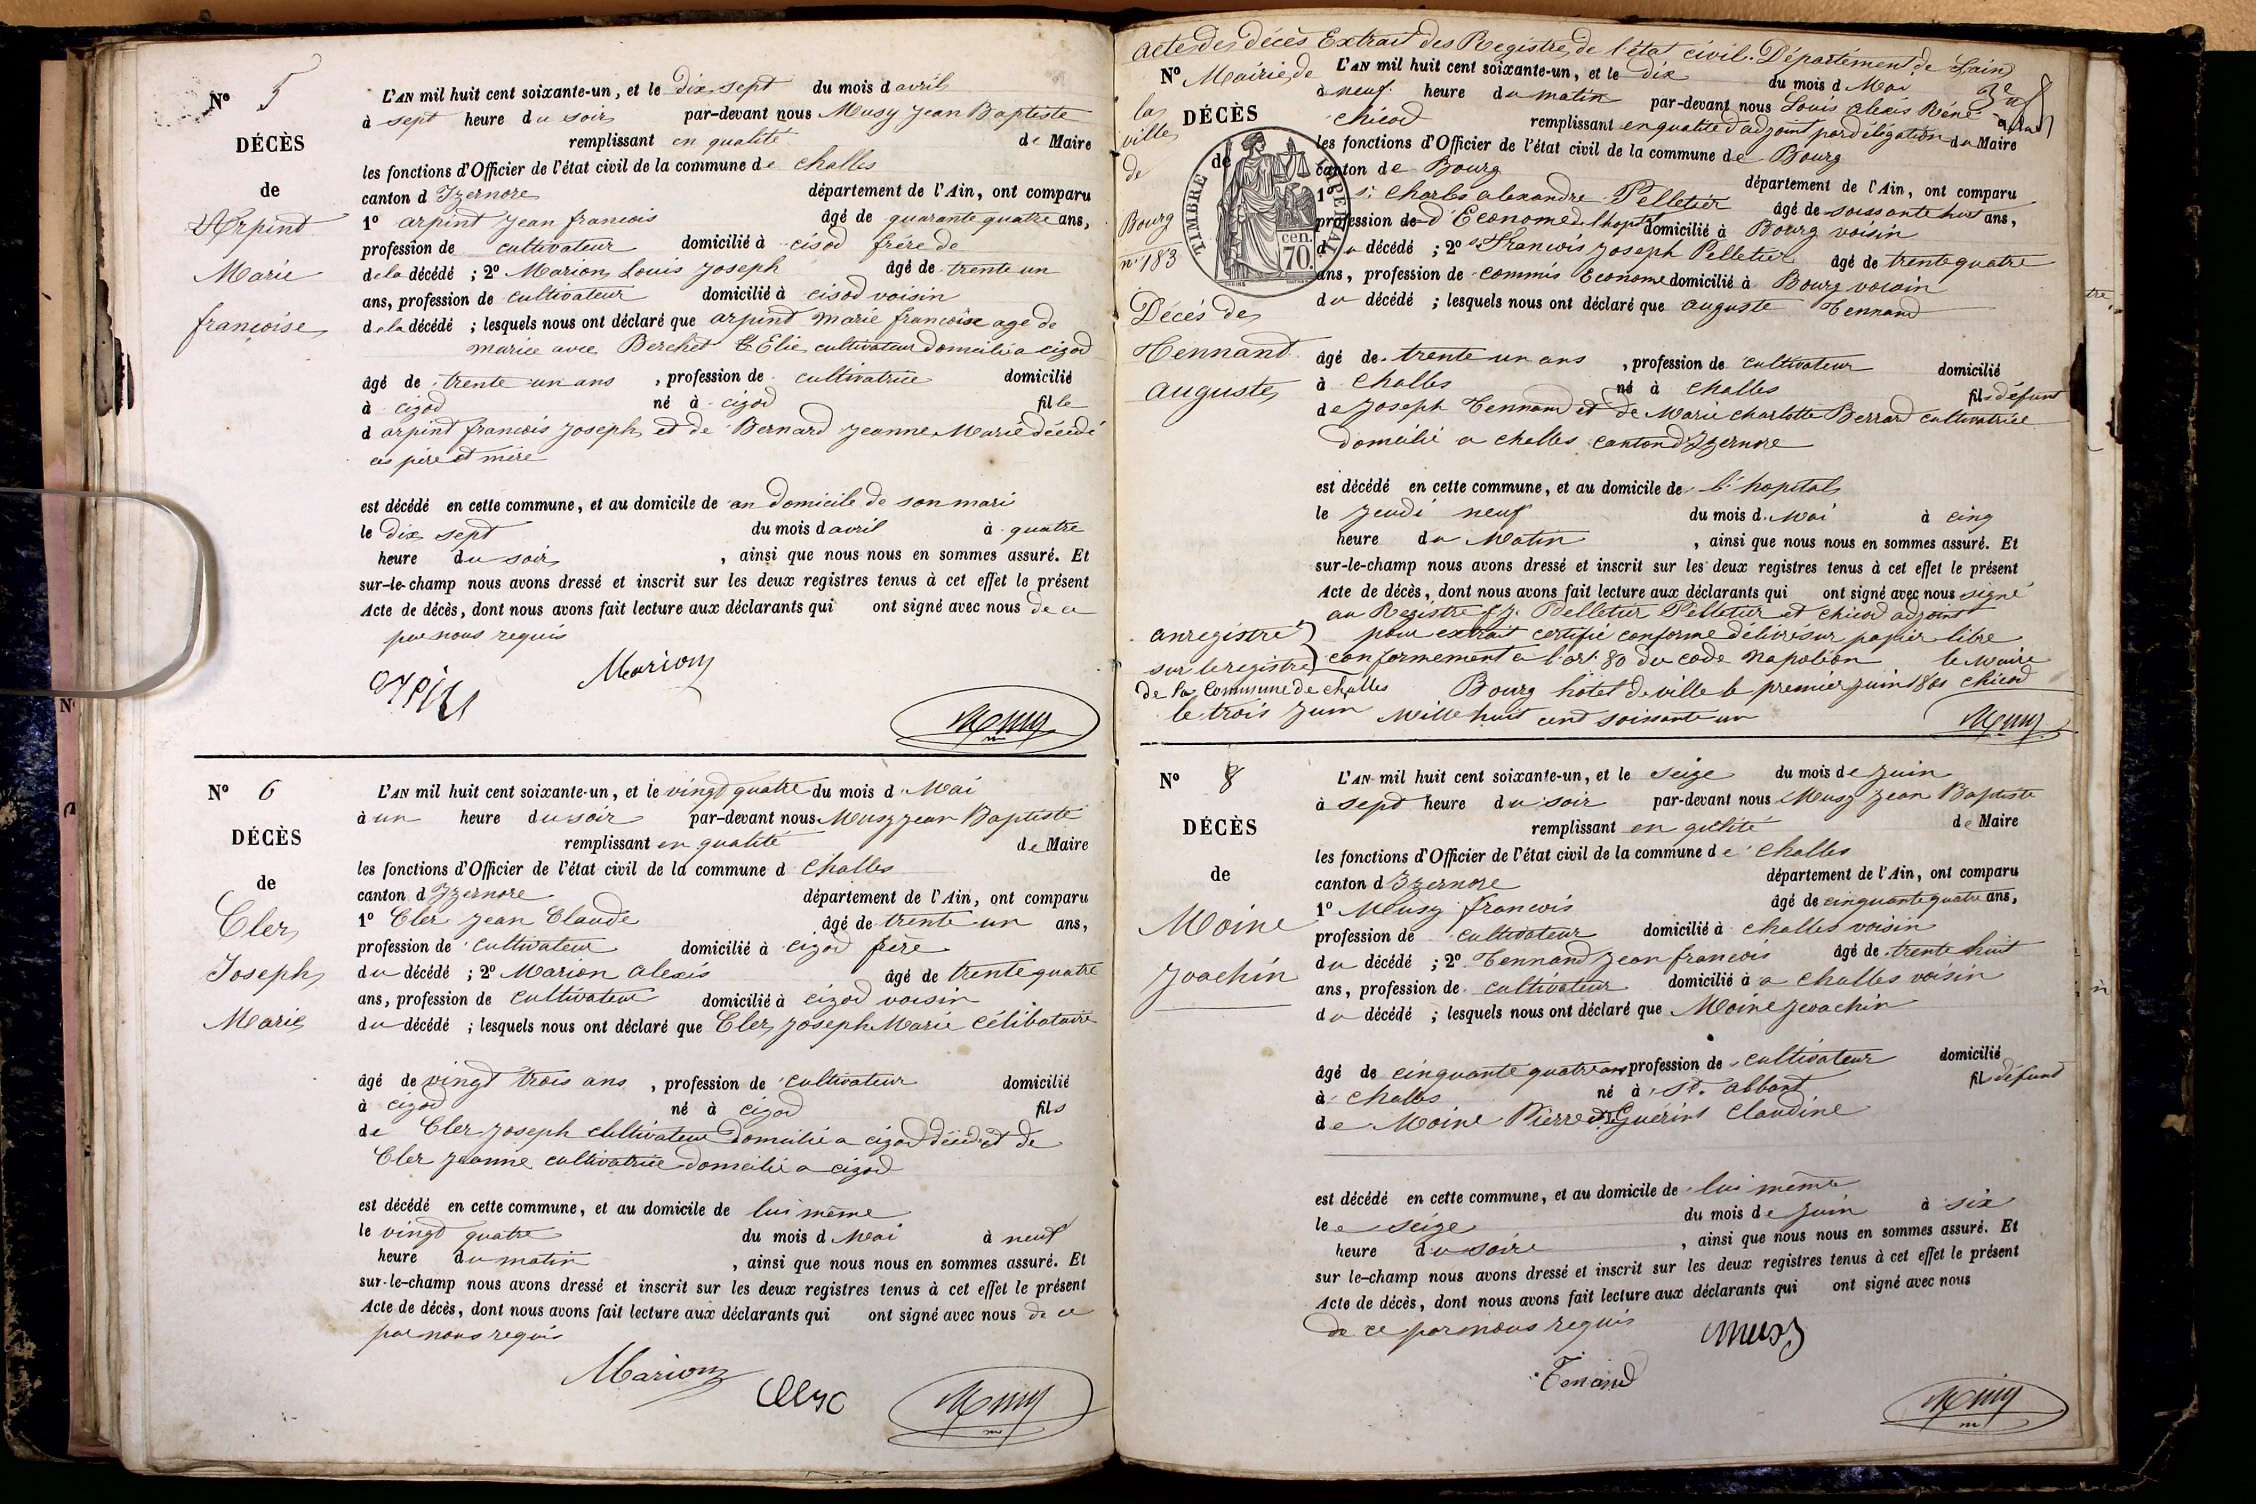 N° 5
DÉCÈS
de
Arpint
Marie
françoise
L'AN mil huit cent soixante-un, et le dix sept du mois d avril
à sept heure du soir par-devant nous Musy Jean Baptiste
remplissant en qualité de Maire
les fonctions d'Officier de l'état civil de la commune de challes
canton d Izernore département de l'Ain, ont comparu
1° arpint Jean francois âgé de quarante quatre ans,
profession de cultivateur domicilié à cisod frére de
de la décédé ; 2° Marion Louis Joseph âgé de trente un
ans, profession de cultivateur domicilié à cisod voisin
de la décédé ; lesquels nous ont déclaré que arpint marie francoise age de
mariee avec Berchet Elie cultivateur domicilié a cizod
âgé de trente un ans , profession de cultivatrice domicilié
à cizod né à cizod fille
d arpint francois Joseph et de Bernard Jeanne Marie décédé
ces père et mère
est décédé en cette commune, et au domicile de au domicile de son mari
le dix sept du mois d avril à quatre
heure du soir , ainsi que nous nous en sommes assuré. Et
sur-le-champ nous avons dressé et inscrit sur les deux registres tenus à cet effet le présent
Acte de décès, dont nous avons fait lecture aux déclarants qui ont signé avec nous de ce
par nous requis
Marion
Musy
N° 6
DÉCÈS
de
Cler
Joseph
Marie
L'AN mil huit cent soixante-un, et le vingt quatre du mois d Mai
à un heure du soir par-devant nous Musy Jean Baptiste
remplissant en qualité de Maire
les fonctions d'Officier de l'état civil de la commune d challes
canton d Izernore département de l'Ain, ont comparu
1° Cler Jean Claude âgé de trente un ans,
profession de cultivateur domicilié à cizod frère
du décédé ; 2° Marion alexis âgé de trente quatre
ans, profession de cultivateur domicilié à cizod voisin
du décédé ; lesquels nous ont déclaré que Cler Joseph Marie célibataire
âgé de vingt trois ans , profession de cultivateur domicilié
à cizod né à cizod fils
de Cler Joseph cultivateur domicilié a cizod décédé et de
Cler Jeanne cultivatrice domicilié a cizod
est décédé en cette commune, et au domicile de lui même
le vingt quatre du mois d Mai à neuf
heure du matin , ainsi que nous nous en sommes assuré. Et
sur-le-champ nous avons dressé et inscrit sur les deux registres tenus à cet effet le présent
Acte de décès, dont nous avons fait lecture aux déclarants qui ont signé avec nous de ce
par nous requis
Marion
Musy
acte de décès Extrait des Registres de l'état civil. Département de l'ain
N° Mairie de
la
ville
DÉCÈS
de
de
Bourg
n° 183
Décés de
Tennant
auguste
TIMBRE IMPERIAL
70. cen.
L'AN mil huit cent soixante-un, et le dix du mois d Mai
à neuf heure du matin par-devant nous Louis alexis Réné
chicod remplissant en qualité d'adjoint par délégation du Maire
les fonctions d'Officier de l'état civil de la commune de Bourg
canton de Bourg département de l'Ain, ont comparu
1° Sr charles alexandre Pelletier âgé de soissante huit ans,
profession de d'Econome de l'hopital domicilié à Bourg voisin
du décédé ; 2° Sr francois Joseph Pelletier âgé de trente quatre
ans, profession de commis Econome domicilié à Bourg voisin
du décédé ; lesquels nous ont déclaré que auguste Tennand
âgé de trente un ans , profession de cultivateur domicilié
à challes né à challes fils défunt
de Joseph Tennand et de Marie charlotte Berrard cultivatrice
domicilié a challes canton d'Izernore
est décédé en cette commune, et au domicile de l'hopital
le jeudi neuf du mois d Mai à cinq
heure du Matin , ainsi que nous nous en sommes assuré. Et
sur-le-champ nous avons dressé et inscrit sur les deux registres tenus à cet effet le présent
Acte de décès, dont nous avons fait lecture aux déclarants qui ont signé avec nous signé
au Registre f. J. Pelletier Pelletier et chicod adjoint
pour extrait certifié conforme délivré sur papier libre
conformement a l'art. 80 du code Napoléon le Maire
Bourg hôtel de ville le premier juin 1861 chicod
anregistré
sur le registre
de la commune de challes
le trois juin Mille huit cent soissante un
Musy
N° 8
DÉCÈS
de
Moine
Joachin
L'AN mil huit cent soixante-un, et le seize du mois de Juin
à sept heure du soir par-devant nous Musy Jean Baptiste
remplissant en qulité de Maire
les fonctions d'Officier de l'état civil de la commune de challes
canton d Izernore département de l'Ain, ont comparu
1° Musy francois âgé de cinquante quatre ans,
profession de cultivateur domicilié à challes voisin
du décédé ; 2° Tennand Jean francois âgé de trente huit
ans, profession de cultivateur domicilié à a challes voisin
du décédé ; lesquels nous ont déclaré que Moine Joachin
âgé de cinquante quatre ans profession de cultivateur domicilié
à challes né à St. albant fil défund
de Moine Pierre et Guerint Claudine
est décédé en cette commune, et au domicile de lui même
le seize du mois de Juin à six
heure du soire , ainsi que nous nous en sommes assuré. Et
sur le-champ nous avons dressé et inscrit sur les deux registres tenus à cet effet le présent
Acte de décès, dont nous avons fait lecture aux déclarants qui ont signé avec nous
de ce par nous requis
musy
Tenand
Musy